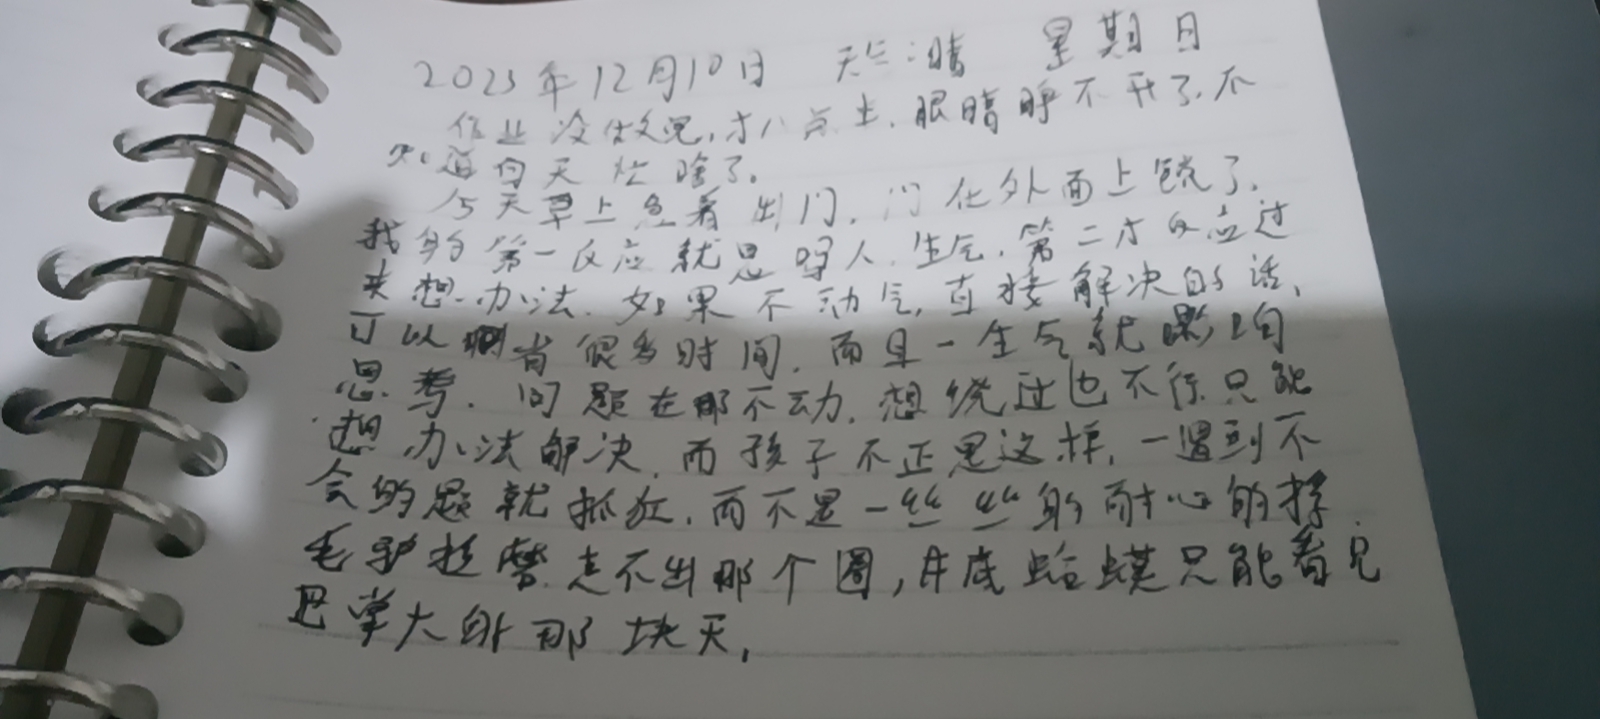 2023年12月10日 天气:晴 星期日
作业没做完,才八点半,眼睛睁不开了,不
知道白天忙啥了。
今天早上急着出门,门在外面上锁了,
我的第一反应就是吗人,生气,第二才反应过
来想办法,如果不动气,直接解决的话,
可以省很多时间,而且一生气就影响
思考,问题在那不动,想绕过也不行只能
想办法解决,而孩子不正是这样,一遇到不
会的题就抓狂,而不是一丝丝的耐心的择,
毛驴拉磨走不出那个圈,井底蛤蟆只能看见
巴掌大的那块天,